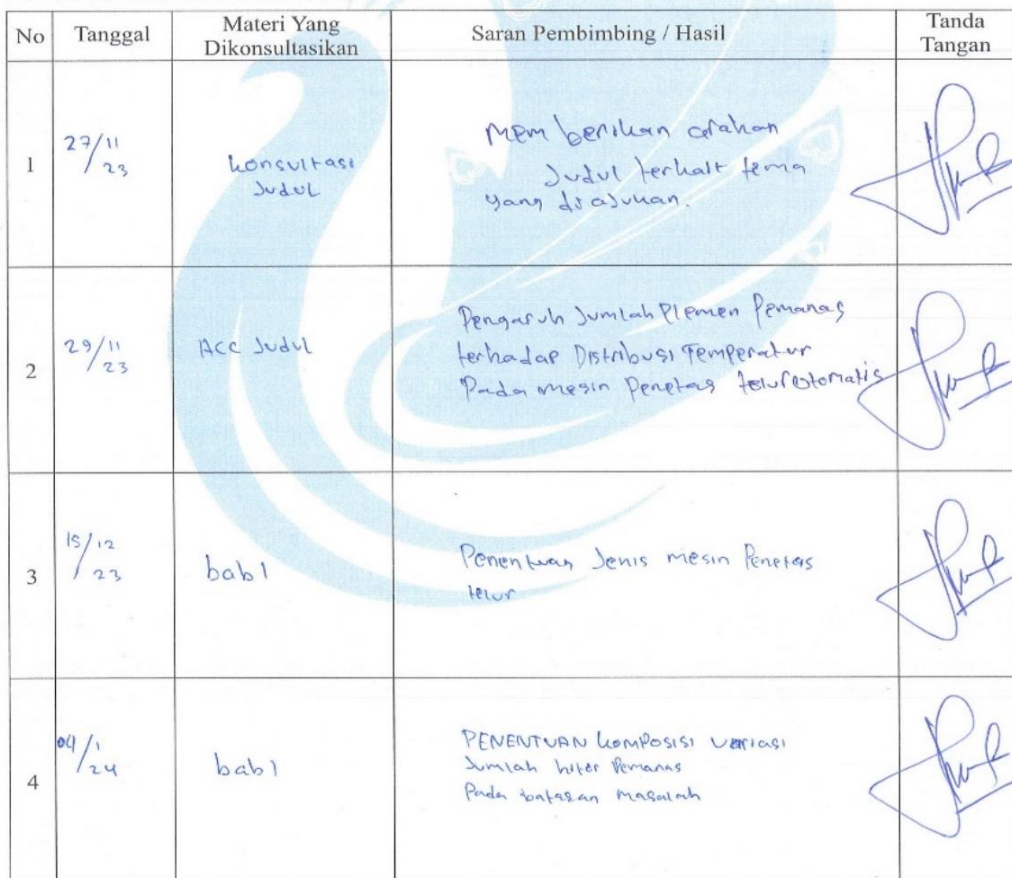 No Tanggal Materi Yang Dikonsultasikan Saran Pembimbing / Hasil Tanda Tangan
1 27/11 23 Konsultasi Judul Memberikan arahan
Judul terkait tema
yang diajukan.
2 29/11 23 ACC Judul Pengaruh Jumlah Elemen Pemanas
terhadap Distribusi Temperatur
Pada mesin Penetas telur otomatis
3 15/12 23 bab 1 Penentuan Jenis mesin Penetas
telur
4 04/1 24 bab 1 PENENTUAN Komposisi variasi
Jumlah hiter Pemanas
Pada batasan masalah